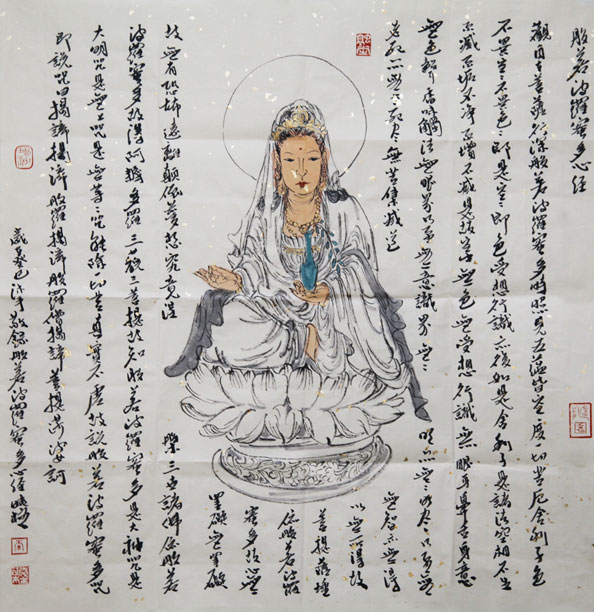 般若波羅蜜多心經
觀自在菩薩行深般若波羅蜜多時照見五蘊皆空度一切苦厄舍利子色
不異空〻不異色〻即是空〻即色受想行識亦復如是舍利子是諸法空相不生
不滅不垢不淨不增不減是故空中無色無受想行識無眼耳鼻舌身意
無色聲香味觸法無眼界乃至無意識界無〻
明亦無〻明盡乃至無
老死亦無〻死盡無苦集滅道
無智亦無得
以無所得故
菩提薩埵
依般若波羅
蜜多故心無
罣礙無罣礙
故無有恐怖遠離顛倒夢想究竟涅
槃三世諸佛依般若
波羅蜜多故得阿耨多羅三藐三菩提故知般若波羅蜜多是大神咒是
大明咒是無上咒是無等〻咒能除一切苦真實不虛故說般若波羅蜜多咒
即說咒曰揭諦揭諦般羅揭諦般羅僧揭諦菩提薩婆訶
歲癸巳沐手敬錄般若波羅蜜多心經